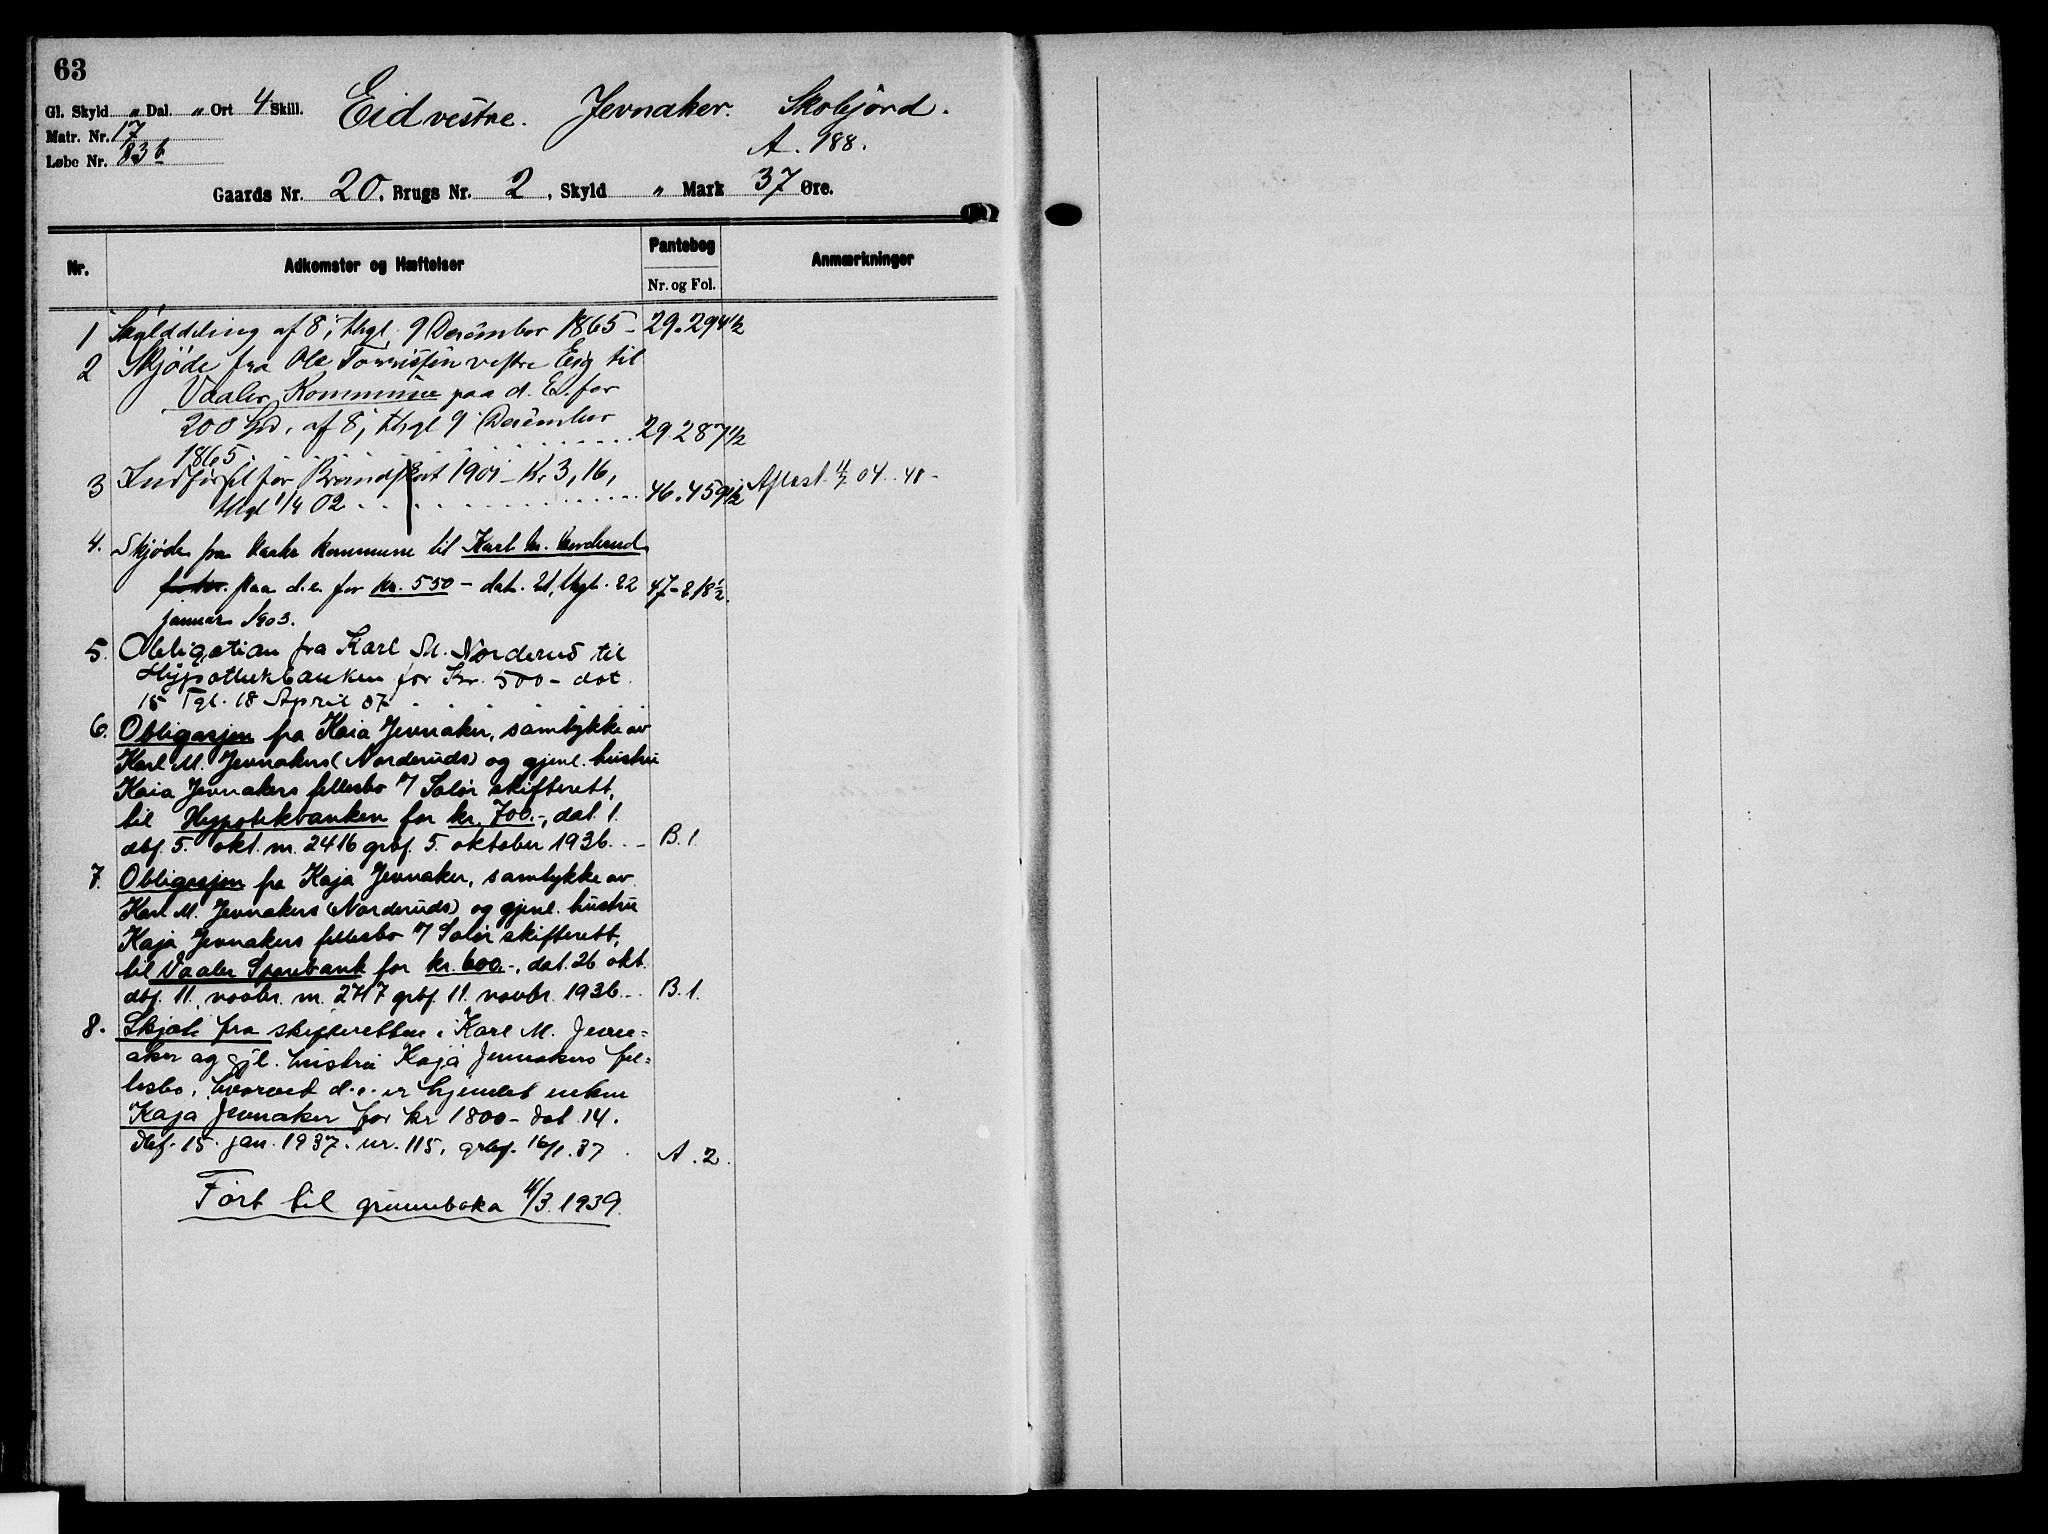 63
Gl. Skyld " Dal. " Ort 4 Skill. Eid vestre. Jevnaker. Skobjörd.
Matr. Nr. 17
A. 188.
Løbe Nr. 83 b
Gaards Nr. 20, Brugs Nr. 2, Skyld " Mark 37 Øre.
Nr. Adkomster og Hæftelser Pantebog Anmærkninger
Nr. og Fol.
1 Skylddeling af 8, thgl. 9 December 1865 - 29.294½
2 Skjöde fra Ole Torrissen vestre Eig til
Vaaler Kommune paa d. E. for
200 Spd. af 8, thgl 9 December
1865. 29.287½
3 Indførsel for Brandskat 1901 - Kr 3,16,
thgl 1/4 02 46.459½ Aflæst 11/7 04. 48 -
4. Skjöde fra Vaaler kommune til Karl M. Norderud
paa d.e. for kr. 550 - dat. 21, thgl. 22 47-218½.
januar 1903.
5. Obligation fra Karl M. Norderud til
Hypothekbanken for Kr. 500 - dat.
15 Tgl. 18 April 07
6. Obligasjon fra Kaia Jevnaker, samtykke av
Karl M. Jevnakers (Norderuds) og gjenl. hustru
Kaia Jevnakers fellesbo v/ Solør skifterett,
til Hypotekbanken for kr. 700.-, dat. 1.
dbf. 5. okt. nr. 2416 grbf. 5. oktober 1936. - B. 1.
7. Obligasjon fra Kaja Jevnaker, samtykke av
Karl M. Jevnakers (Norderuds) og gjenl. hustru
Kaja Jevnakers fellesbo v/ Solør skifterett,
til Vaaler Sparebank for kr. 600.-, dat. 26 okt.
dbf. 11. novbr. nr. 2717 grbf. 11. novbr. 1936. - B. 1.
8. Skjøte fra skifteretten i Karl M. Jevn=
aker og gjl. hustru Kaja Jevnakers fel=
lesbo, hvorved d.e. er hjemlet enken
Kaja Jevnaker for kr 1800 - dat. 14.
Dbf. 15. jan. 1937. nr. 115, grbf. 16/1. 37. A. 2.
Ført til grunnboka 4/3. 1939.